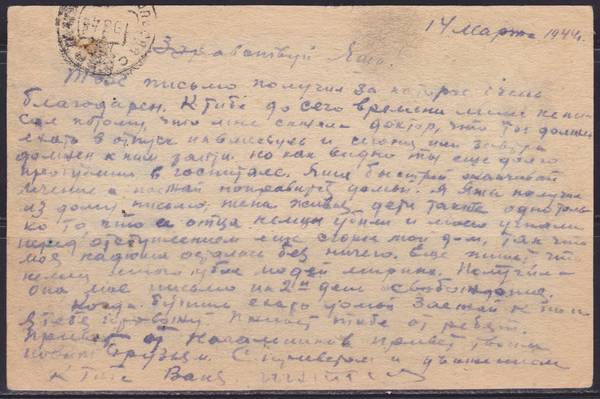 14 Марта 1944 г.
Здравствуй Яша!
Твое письмо получил за которое очень
благодарен. К тебе до сего времени письма не пи-
сал потому, что мне сказал доктор, что ты должен
ехать в отпуск и сегодня или завтра
должен к нам зайти. Но как видно ты еще долго
в госпитале. Яша быстрей оканчивай
лечение а настай поправится дома. Я Яша получил
из дому письмо, жена живая, дети также одно толь
ко то что отца немцы убили и моего угнали
перед отступлением еще сгорел мой дом, так что
моя осталась без ничего. Еще пишет, что
немец много убил людей мирных. Получила
она мое письмо на 2й день освобождения.
Когда будешь ехать домой Заезжай к нам
я тебя провожу Привет тебе от ребят.
Привет от Начальников привет твоим
новым друзьям. С приветом и уважением
к тебе Ваня.